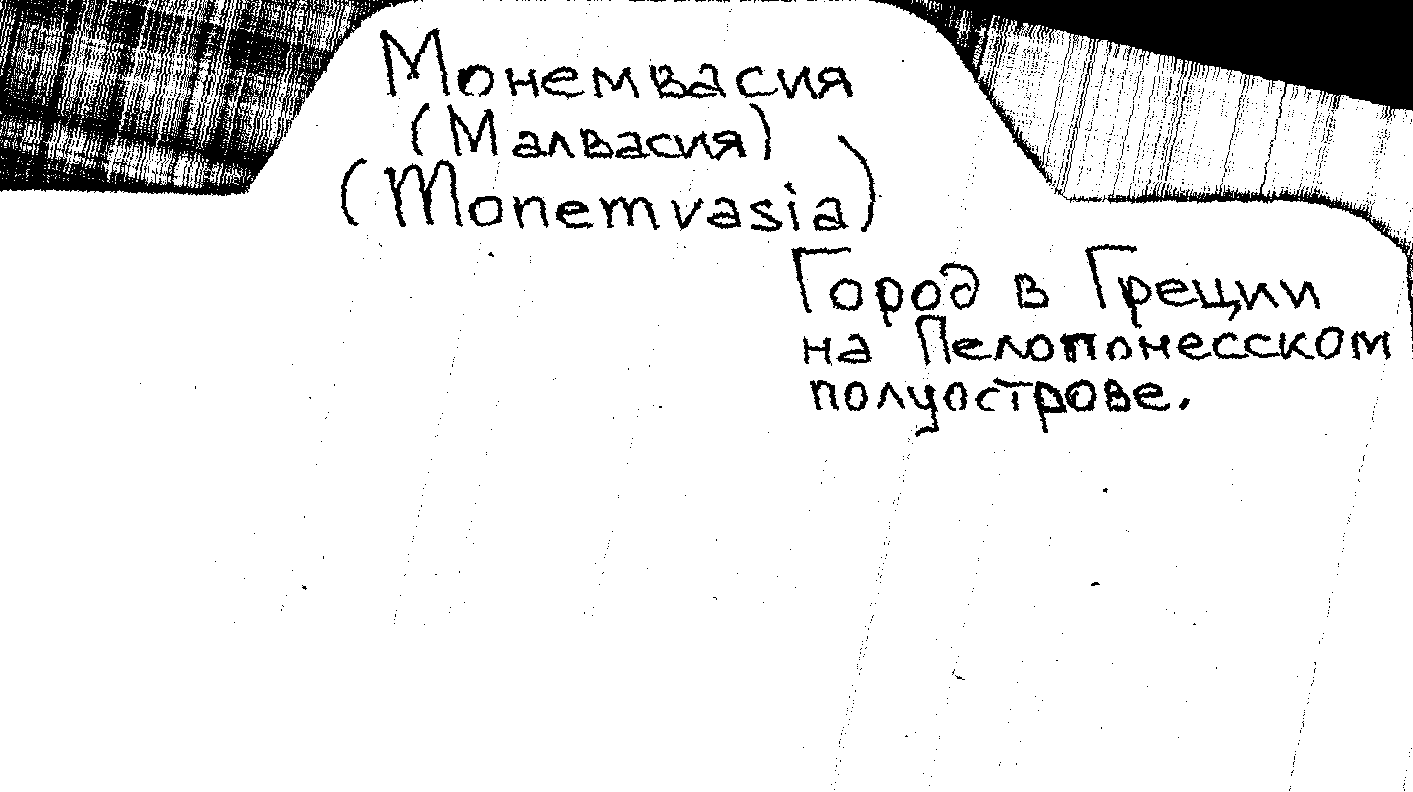 Монемвасия
(Малвасия)
(Monemvasia)
Город в Греции
на Пелопонесском
полуострове.